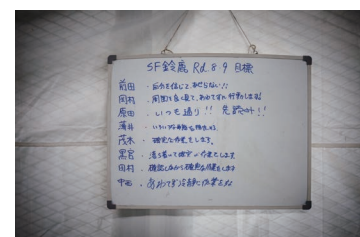 SF鈴鹿 Rd.8.9 目標
前田 ・自分を信じて、あせらない!!
岡村 ・周囲を良く見て、あわてずに行動します!
原田 ・いつも通り!! 先読み!!
薄井
茂木 ・確実な作業をします。
黒宮 ・落ち着いて確実な作業をします
田村 ・確認しながら確実な作業をします
中西 ・あわてず冷静に作業する